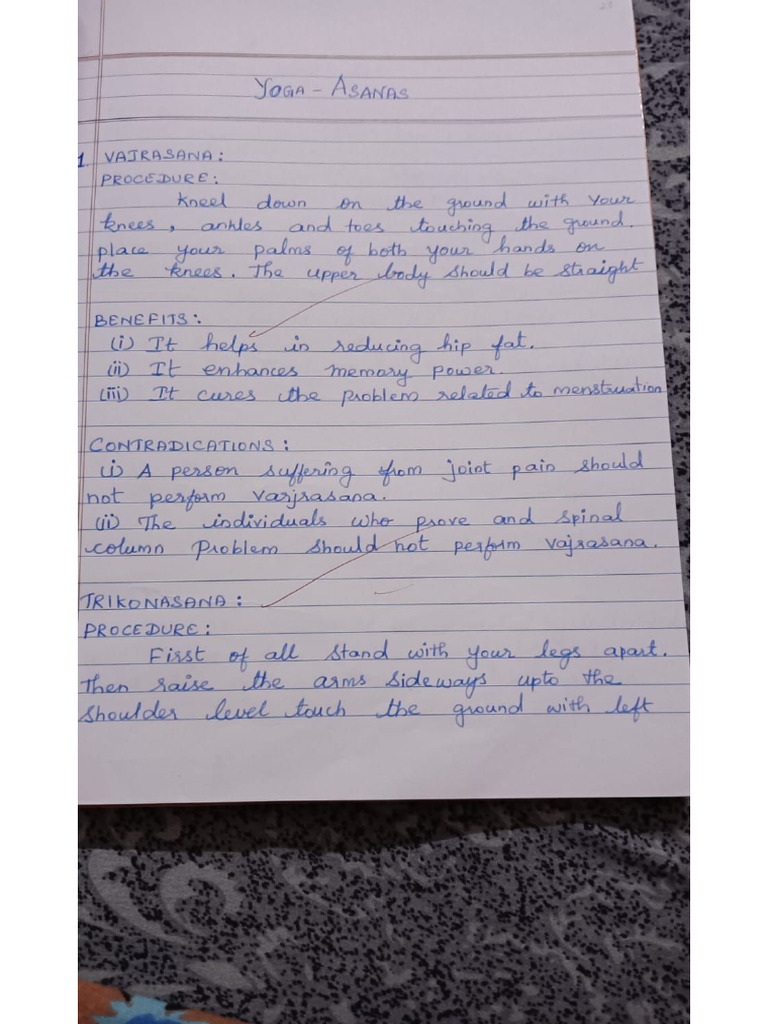 YOGA - ASANAS
1. VAJRASANA:
PROCEDURE:
Kneel down on the ground with your
knees, ankles and toes touching the ground.
place your palms of both your hands on
the knees. The upper body should be straight
BENEFITS:
(i) It helps in reducing hip fat.
(ii) It enhances memory power.
(iii) It cures the problem related to menstruation
CONTRADICATIONS:
(i) A person suffering from joint pain should
not perform varjrasana.
(ii) The individuals who prove and spinal
column Problem should not perform vajrasana.
TRIKONASANA:
PROCEDURE:
First of all stand with your legs apart.
Then raise the arms sideways upto the
shoulder level touch the ground with left